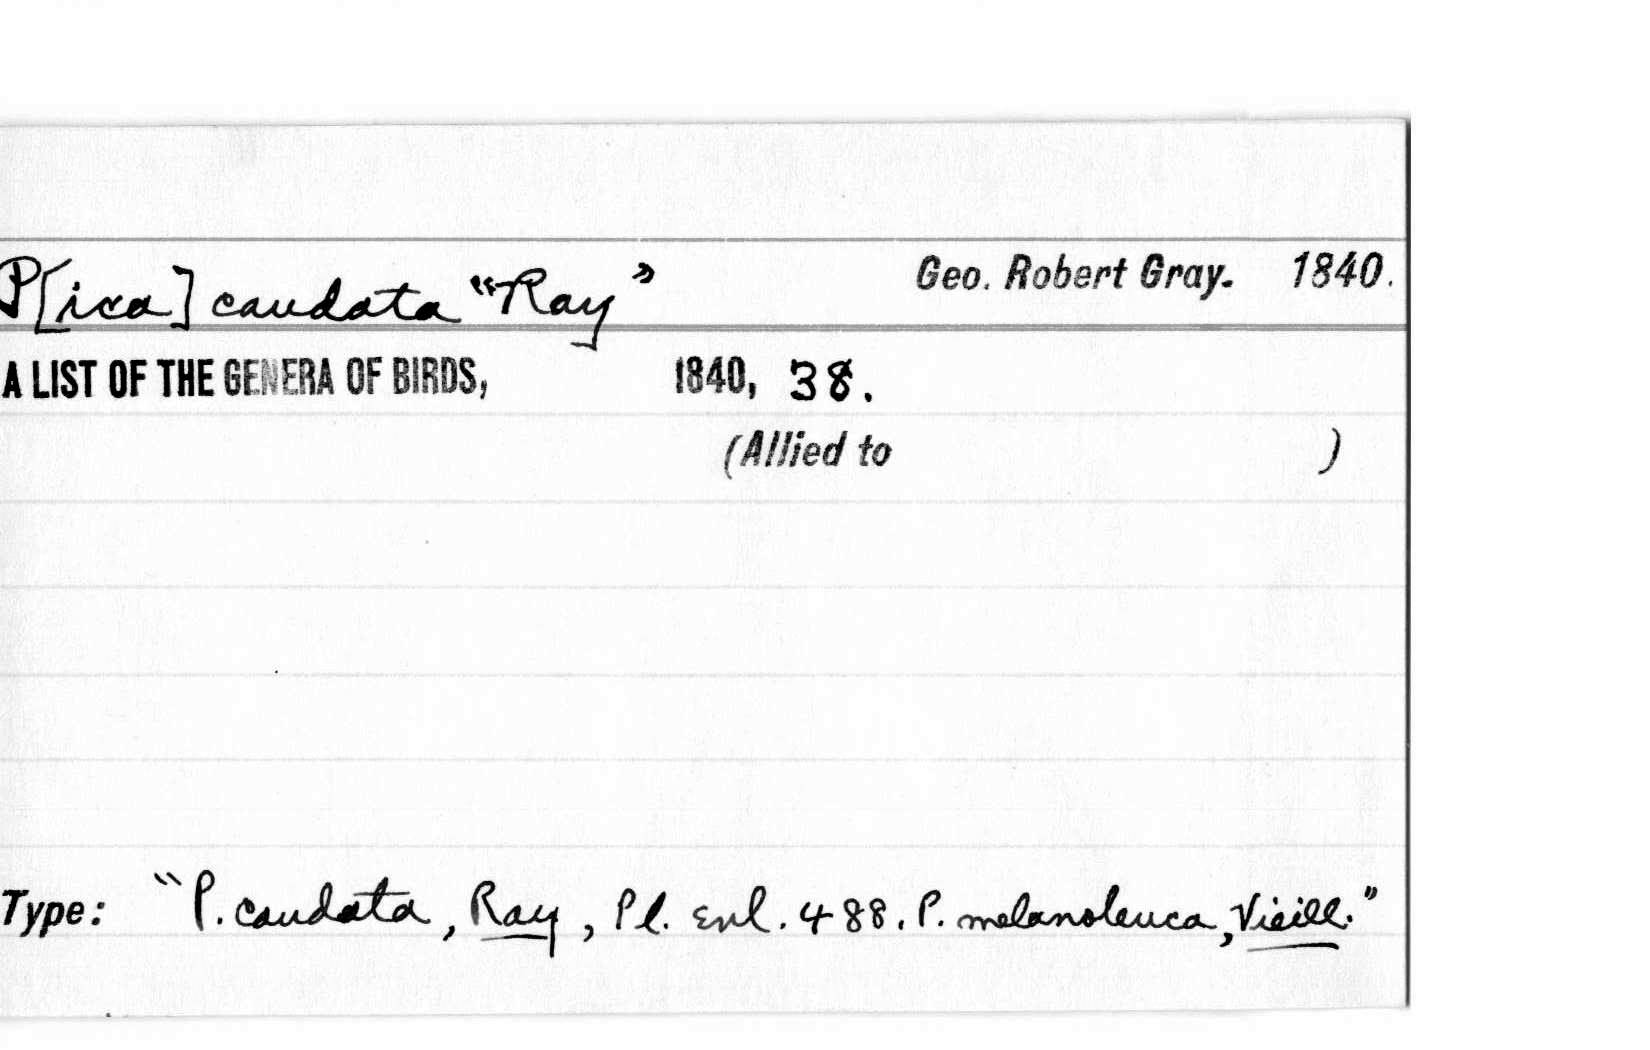 P[ica] caudata "Ray" Geo. Robert Gray. 1840.
A LIST OF THE GENERA OF BIRDS, 1840, 38.
(Allied to )
Type: "P. caudata, Ray, Pl. Enl. 488. P. melanoleuca, Vieill."